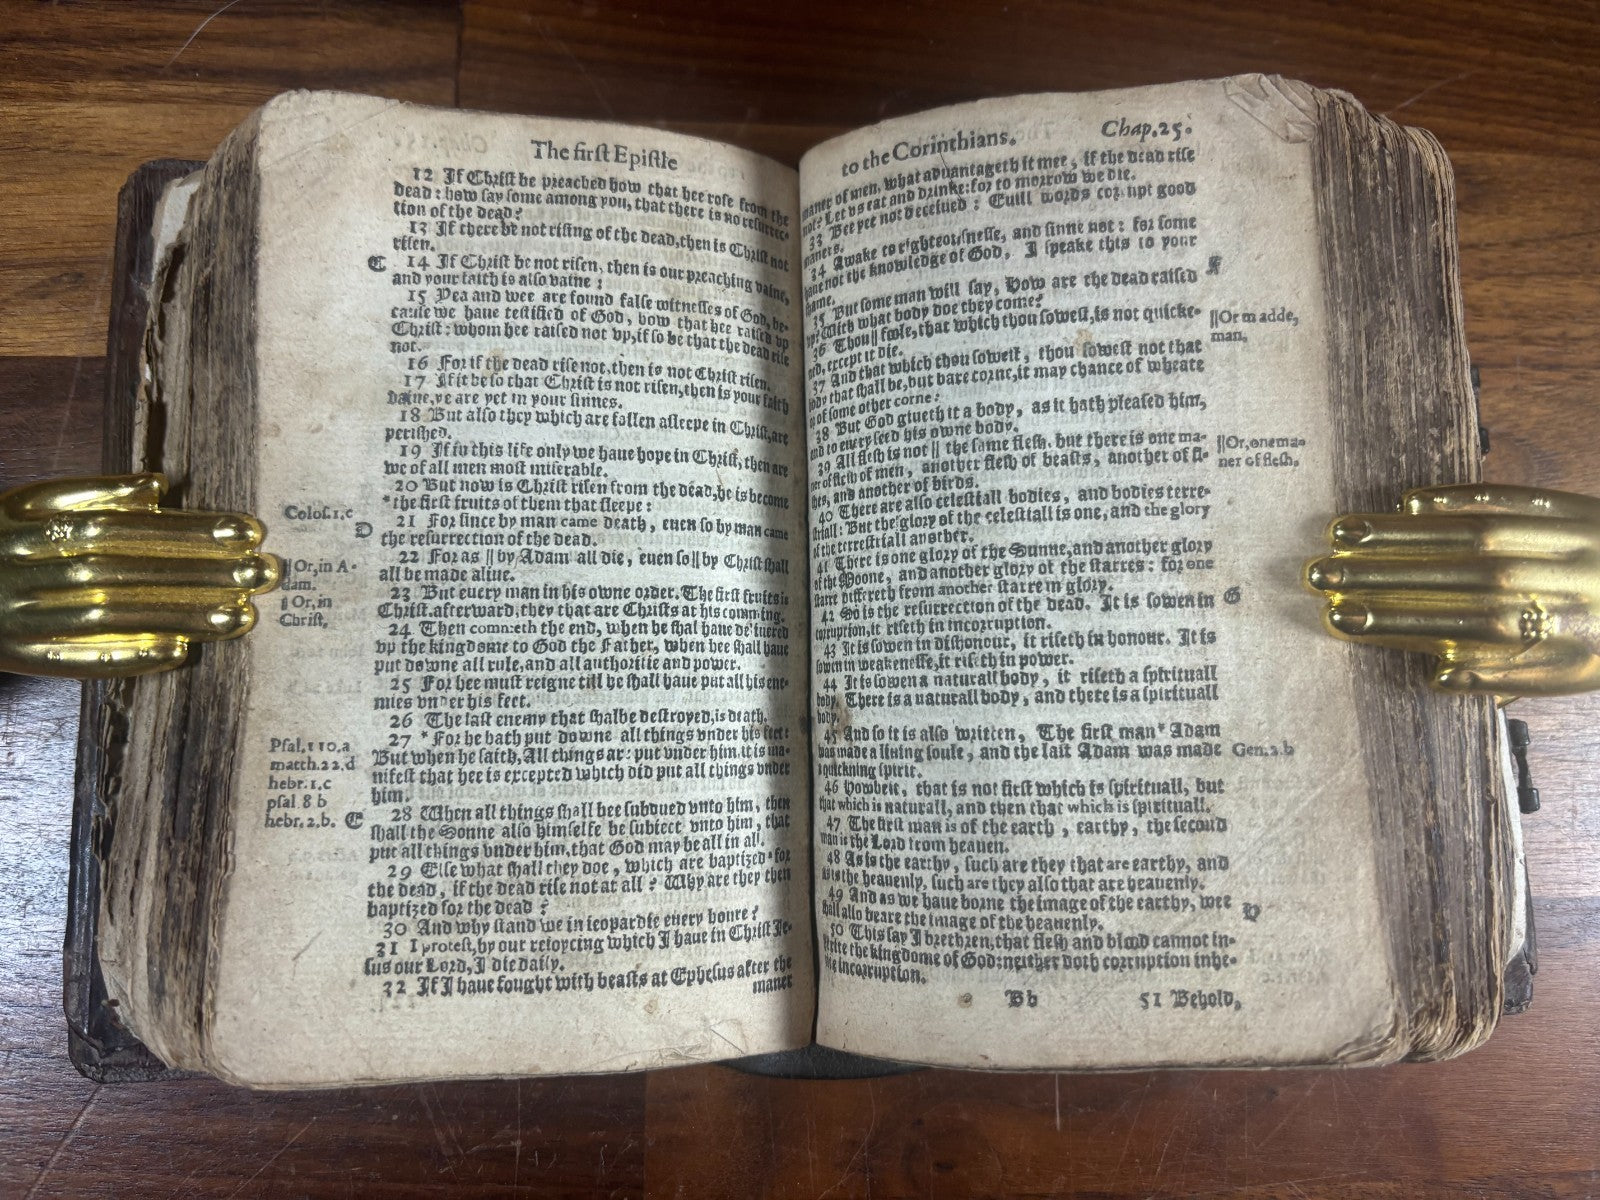 The first Epistle
12 If Christ be preached how that hee rose from the
dead: how say some among you, that there is no resurrec-
tion of the dead?
13 If there be not rising of the dead, then is Christ not
risen.
C 14 If Christ be not risen, then is our preaching vaine,
and your faith is also vaine:
15 Yea and wee are found false witnesses of God, be-
cause we haue testified of God, how that hee raised vp
Christ: whom hee raised not vp, if so be that the dead rise
not.
16 For if the dead rise not, then is not Christ risen.
17 If it be so that Christ is not risen, then is your faith
vaine, ye are yet in your sinnes.
18 But also they which are fallen asleepe in Christ, are
perished.
19 If in this life only we haue hope in Christ, then are
we of all men most miserable.
20 But now is Christ risen from the dead, he is become
*the first fruits of them that sleepe:
Colos. 1. c
D 21 For since by man came death, euen so by man came
the resurrection of the dead.
22 For as || by Adam all die, euen so || by Christ shall
all be made aliue.
||Or, in A-
dam.
|| Or, in
Christ,
23 But euery man in his owne order. The first fruits is
Christ, afterward, they that are Christs at his comming.
24 Then commeth the end, when he shal haue deliuered
vp the kingdome to God the Father, when hee shall haue
put downe all rule, and all authoritie and power.
25 For hee must reigne till he shall haue put all his ene-
mies vnder his feet.
26 The last enemy that shalbe destroyed, is death.
27 *For he hath put downe all things vnder his feet:
But when he saith, All things are put vnder him, it is ma-
nifest that hee is excepted which did put all things vnder
him.
Psal. 110. a
matth. 22. d
hebr. 1. c
psal 8 b
hebr. 2. b. E
28 When all things shall bee subdued vnto him, then
shall the Sonne also himselfe be subiect vnto him, that
put all things vnder him, that God may be all in all.
29 Else what shall they doe, which are baptized for
the dead, if the dead rise not at all? Why are they then
baptized for the dead?
30 And why stand we in ieopardie euery houre?
31 I protest, by our reioycing which I haue in Christ Je-
sus our Lord, I die daily.
32 If I haue fought with beasts at Ephesus after the
maner
to the Corinthians. Chap. 25.
maner of men, what aduantageth it mee, if the dead rise
not? Let vs eat and drinke: for to morrow we die.
33 Bee yee not deceiued: Euill words corrupt good
maners.
34 Awake to righteousnesse, and sinne not: for some
haue not the knowledge of God, I speake this to your
shame.
35 But some man will say, How are the dead raised
vp? With what body doe they come?
F
36 Thou || foole, that which thou sowest, is not quicke-
ned, except it die.
||Or madde,
man.
37 And that which thou sowest, thou sowest not that
body that shall be, but bare corne, it may chance of wheate
or of some other corne:
38 But God giueth it a body, as it hath pleased him,
and to euery seed his owne body.
39 All flesh is not || the same flesh, but there is one ma-
ner of flesh of men, another flesh of beasts, another of fi-
shes, and another of birds.
||Or, one ma-
ner of flesh.
40 There are also celestiall bodies, and bodies terre-
striall: But the glory of the celestiall is one, and the glory
of the terrestriall another.
41 There is one glory of the Sunne, and another glory
of the Moone, and another glory of the starres: for one
starre differeth from another starre in glory.
42 So is the resurrection of the dead. It is sowen in G
corruption, it riseth in incorruption.
43 It is sowen in dishonour, it riseth in honour. It is
sowen in weakenesse, it riseth in power.
44 It is sowen a naturall body, it riseth a spirituall
body. There is a naturall body, and there is a spirituall
body.
45 And so it is also written, The first man * Adam
was made a liuing soule, and the last Adam was made
a quickning spirit.
Gen. 2. b
46 Howbeit, that is not first which is spirituall, but
that which is naturall, and then that which is spirituall.
47 The first man is of the earth, earthy, the second
man is the Lord from heauen.
48 As is the earthy, such are they that are earthy, and
as is the heauenly, such are they also that are heauenly.
49 And as we haue borne the image of the earthy, wee
shall also beare the image of the heauenly.
H
50 This say I brethren, that flesh and blood cannot in-
herite the kingdome of God: neither doth corruption inhe-
rite incorruption.
Bb 51 Behold,